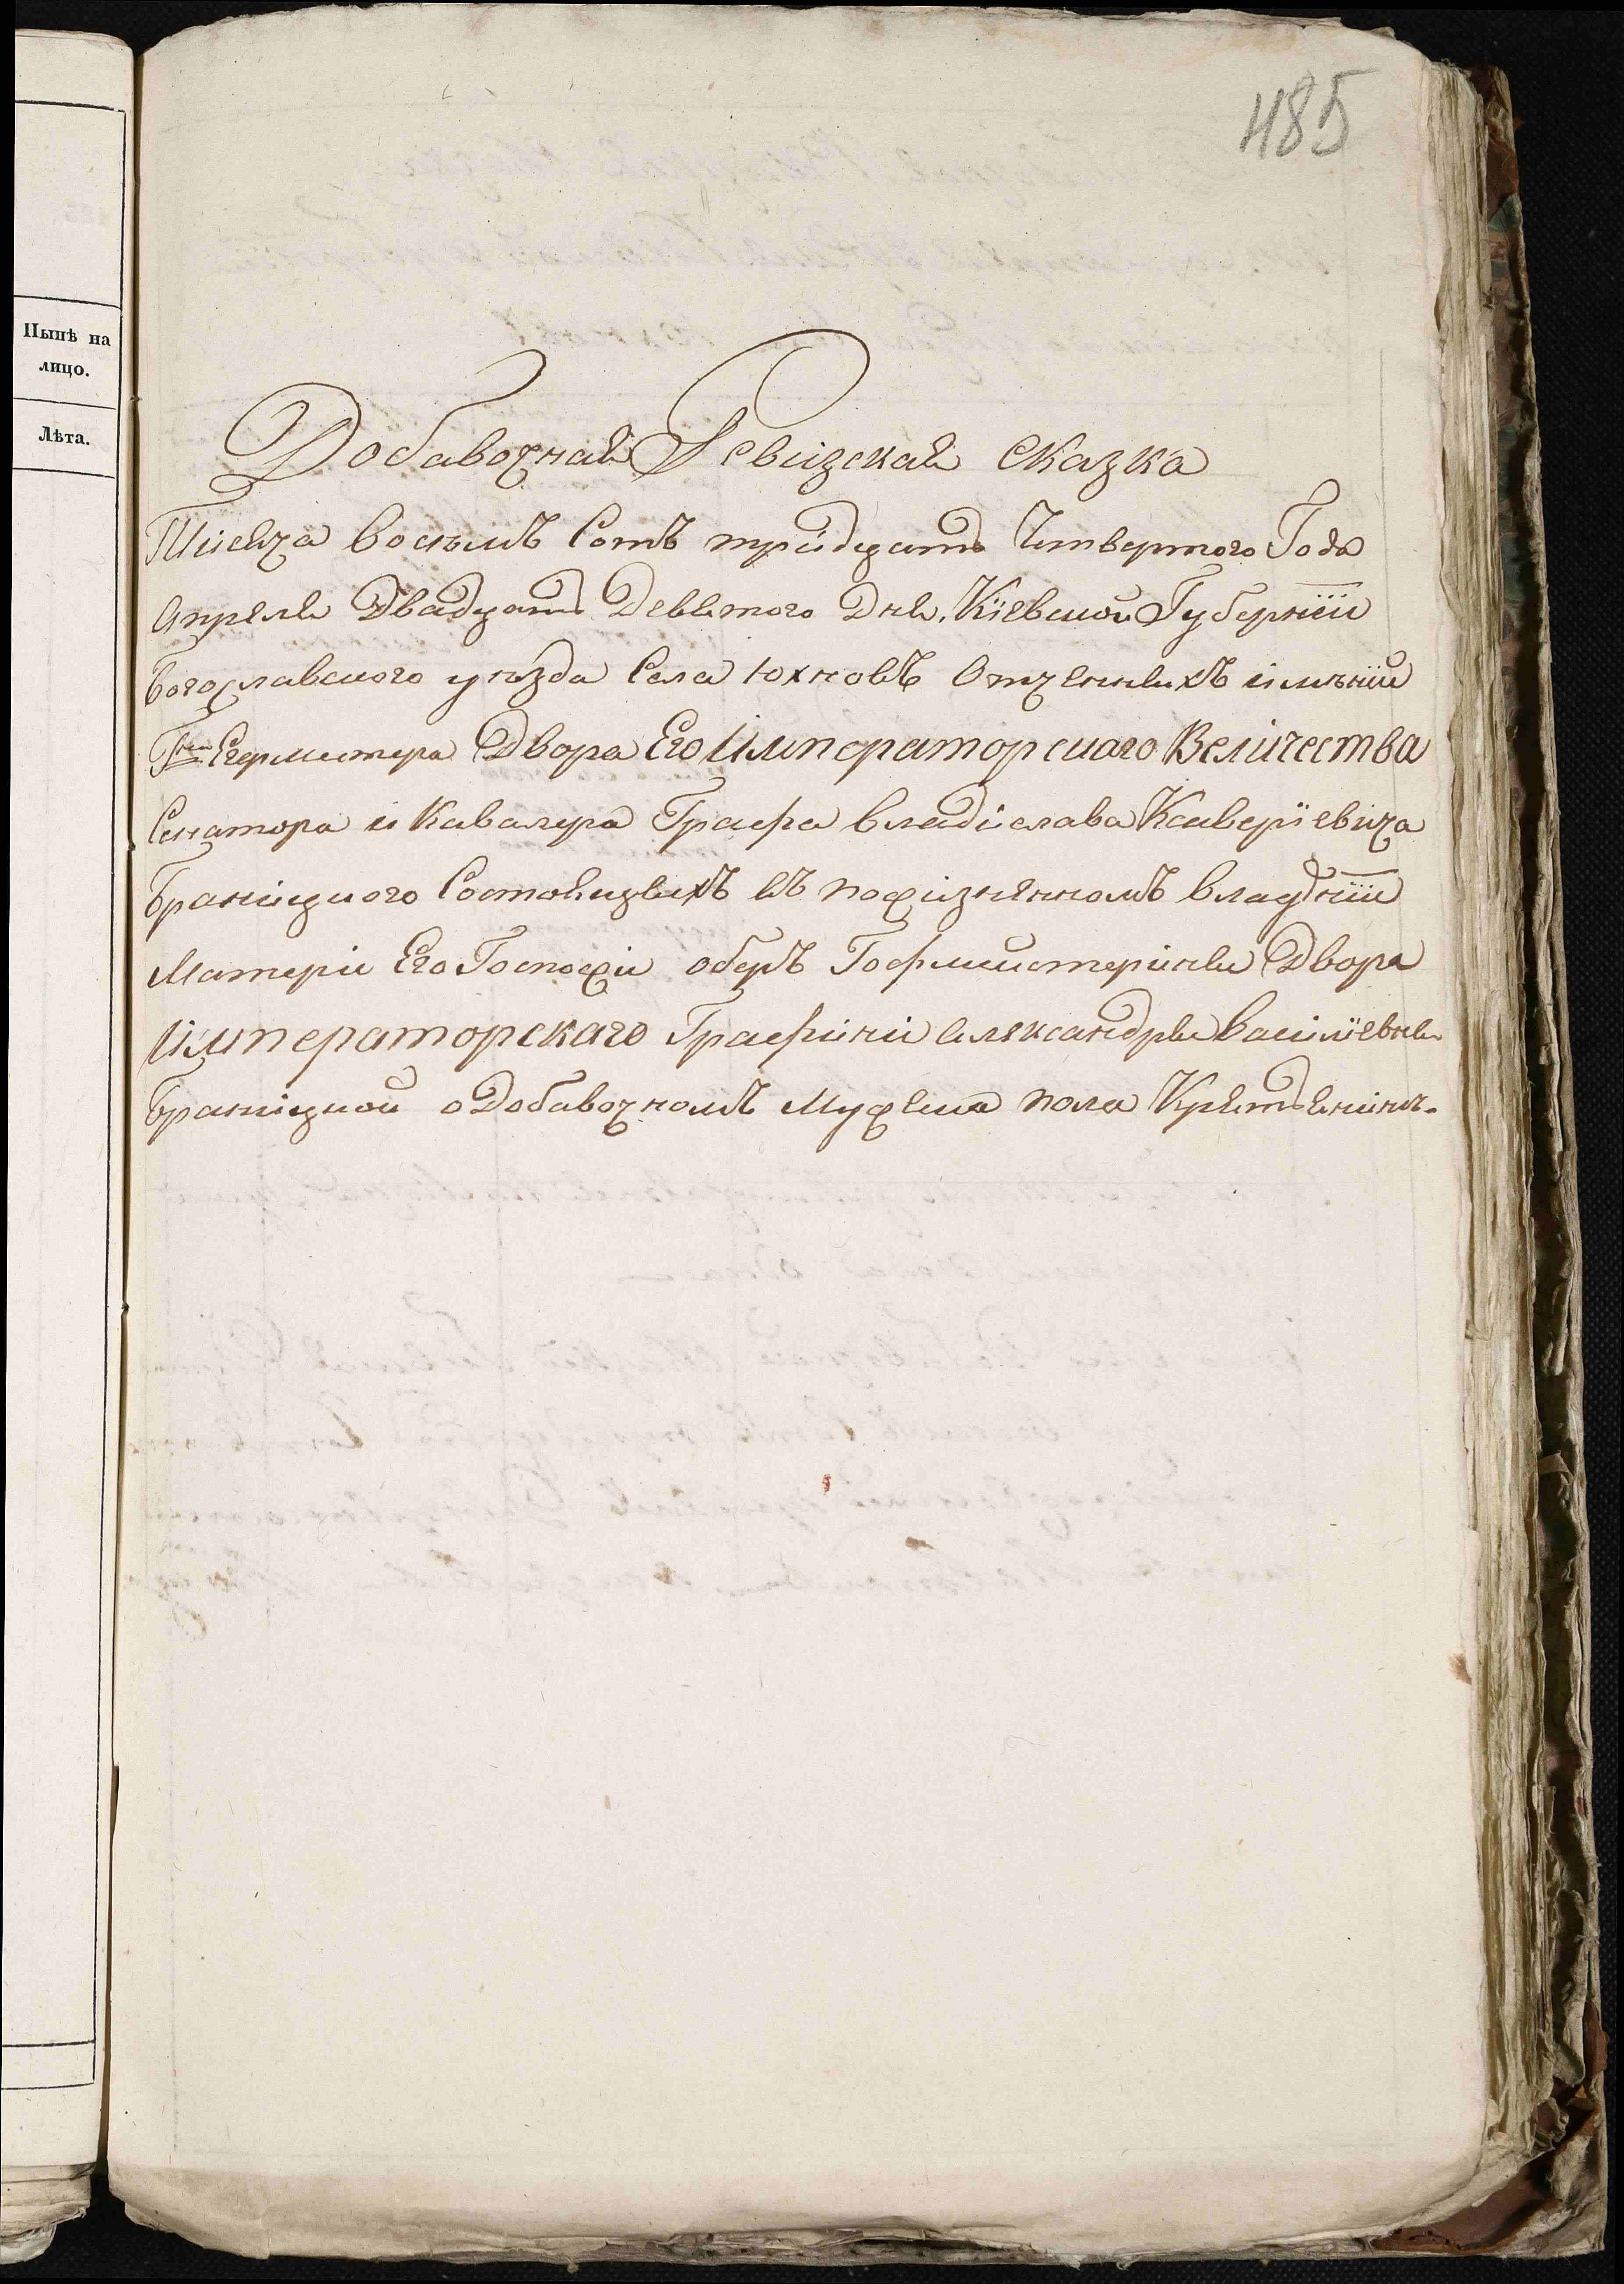 485
Нынѣ на
лицо.
Лѣта.
Добавочная Ревизская Сказка
Тысяча восемъ Сотъ тридцать Четвертого Года
Апреля Двадцать Девятого Дня, Кіевской Губерніи
Богославского уезда Села Юхновъ Отченныхъ имѣній
Егермистера Двора Его Императорскаго Величества
Сенатора и Кавалера Графа владіслава Ксаверіевича
Браницкого Состоящыхъ въ пожизненномъ владѣніи
Матери Его Госпожи оберъ Гофмейстерины Двора
Императорскаго Графини александры василіевны
Браницкой о Добавочномъ Мужеска пола